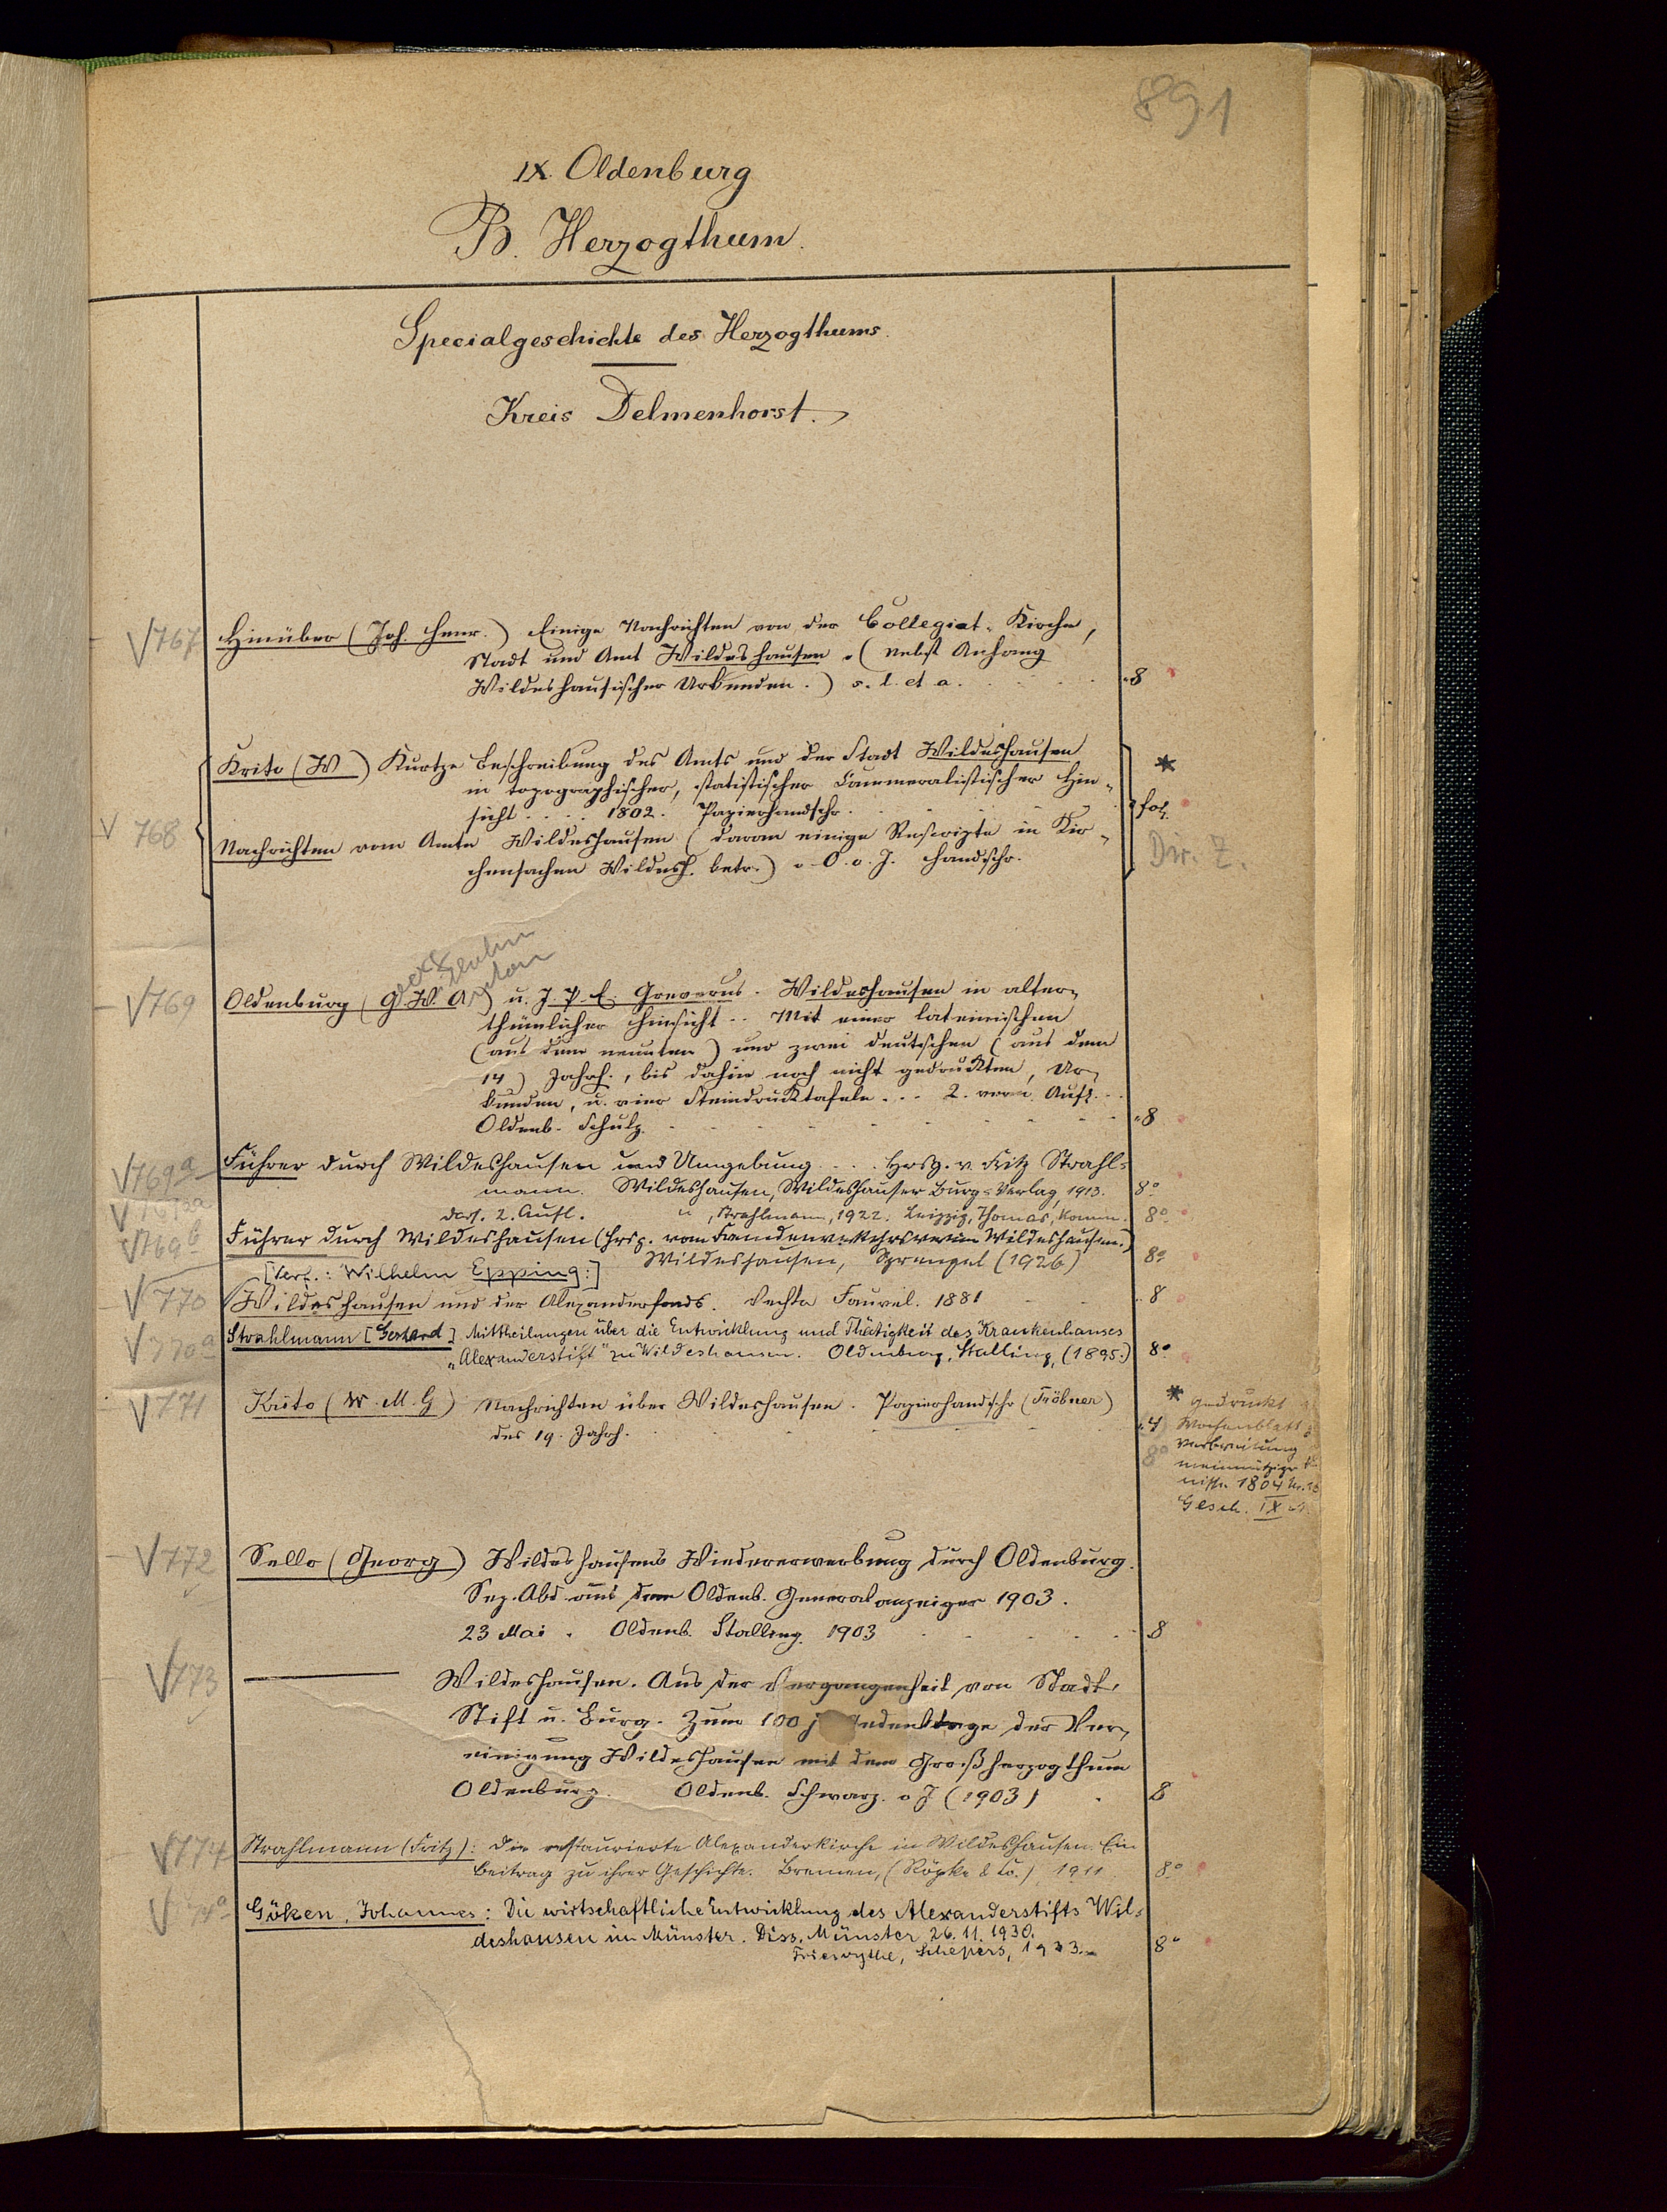 891
IX. Oldenburg
B. Herzogthum.
Specialgeschichte des Herzogthums.
Kreis Delmenhorst.
V 767 Hinüber (Joh. Henr.) Einige Nachrichten von der Collegiat-Kirche,
Stadt und Amt Wildeshausen. (Nebst Anhang
Wildeshausischer Urkunden.) s. l. et a. 8
Krito (W) Kurtze Beschreibung des Amts und der Stadt Wildeshausen *
in topographischer, statistischer Cammeralistischer Hin-
sicht .... 1802. Papierhandschr. fol.
V 768 Nachrichten vom Amte Wildeshausen (daran einige Rescripte in Kir- Dir. Z.
chensachen Wildesh. betr.) o. O. o. J. Handschr.
V 769 Oldenburg (G. W. A) u. J. P. E. Greverus. Wildeshausen in alter-
thümlicher Hinsicht .. Mit einer lateinischen
(aus dem neunten) und zwei deutschen (aus dem
14) Jahrh., bis dahin noch nicht gedruckten, Ur-
kunden, u. vier Steindrucktafeln ... 2. verm. Aufl. ..
Oldenb. Schulz. 8
V 769a Führer durch Wildeshausen und Umgebung .... Hrsg. v. Fritz Strahl-
mann. Wildeshausen, Wildeshauser Burg-Verlag, 1913. 8°
V 769aa dass. 2. Aufl. " , Strahlmann, 1922. Leipzig, Thomas, Komm. 8°
V 769b Führer durch Wildeshausen (Hrsg. vom Fremdenverkehrsverein Wildeshausen.)
Wildeshausen, Sprengel (1926) 8°
[Verf.: Wilhelm Epping:]
V 770 Wildeshausen und der Alexanderfonds. Vechta Fauvel. 1881 8
V 770a Strahlmann [Gerhard] Mittheilungen über die Entwicklung und Thätigkeit des Krankenhauses
"Alexanderstift" zu Wildeshausen. Oldenburg, Stalling, (1895.) 8°
V 771 Krito (W. M. G) Nachrichten über Wildeshausen. Papierhandschr (Fröbner)
des 19. Jahrh. 4
8°
* gedruckt
Wochenblatt
Verbreitung
meinnütziger
nisse 1804
Gesch. IX
V 772 Sello (Georg) Wildeshausens Wiedererwerbung durch Oldenburg.
Sep. Abd. aus dem Oldenb. Generalanzeiger 1903.
23 Mai. Oldenb. Stalling. 1903 8
V 773 Wildeshausen. Aus der Vergangenheit von Stadt,
Stift u. Burg. Zum 100 j Gedenktage der Ver-
einigung Wildeshausen mit dem Großherzogthum
Oldenburg. Oldenb. Schwarz. o J (1903) 8
V 774 Strahlmann (Fritz): Die restaurierte Alexanderkirche in Wildeshausen. Ein
Beitrag zu ihrer Geschichte. Bremen, (Röpke & Co.) 1911. 8°
V 774a Göken, Johannes: Die wirtschaftliche Entwicklung des Alexanderstifts Wil-
deshausen im Münster. Diss. Münster 26. 11. 1930.
Friesoythe, Schepers, 1933. 8°